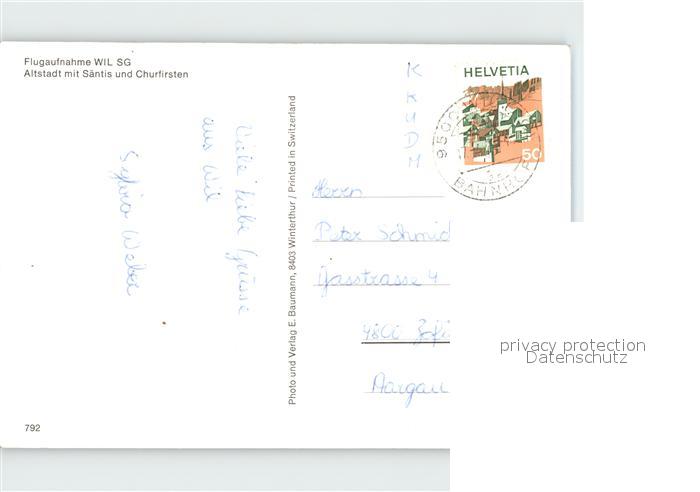 Flugaufnahme WIL SG
Altstadt mit Säntis und Churfirsten
Viele liebe Grüsse
aus Wil
Weber
Photo und Verlag E. Baumann, 8403 Winterthur / Printed in Switzerland
K
K
U
D
M
HELVETIA
50
9500
BAHNHOF
Herrn
Peter Schmid
Gasstrasse 4
4800 Zofi
Aargau
792
privacy protection
Datenschutz